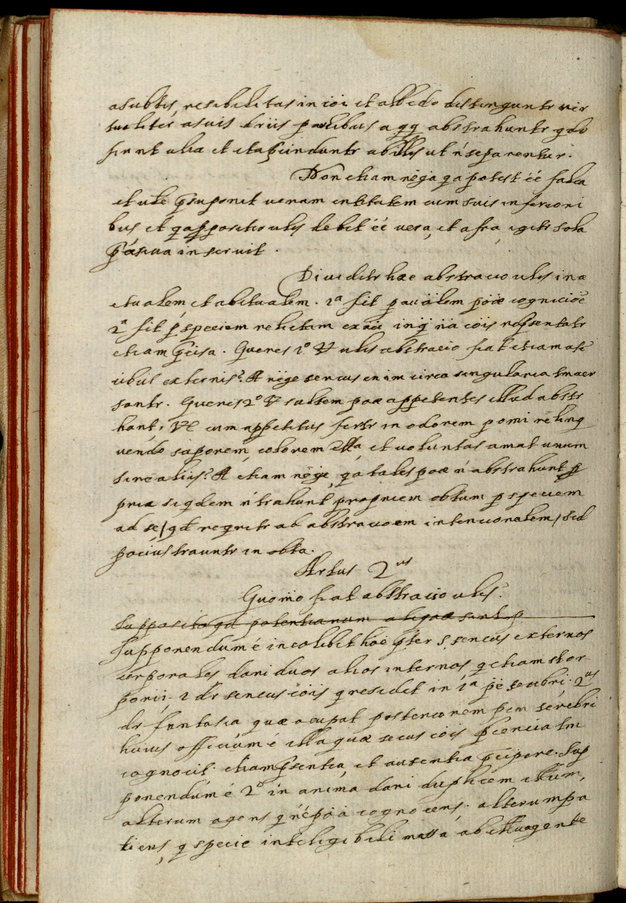 a subtis, resibilitas in ioi et albedo distinguntr vir
tualiter a suis driis partibus a qq abstrahuntr qdo
fiunt ulia et ita pscinduntr ab illis ut ñ separentur.
Don etiam nega qa potest ée falsa
et ute psuponit unam intitatem cum suis inferiori
bus et qa ppositio ulis debit ée vera, et afra, igitr sola
pasiva inservit.
Dividitr hæc abstracio ulis in a
ctualem et abitualem. 1ª fit p acualem poæ cognicioē
2ª fit p speciem relictam ex acu in q̃ na cois repsentatr
etiam pcisa. Queres 1º V ulis abstracio fiat etiam a se
cibus externis? R nege sencus enim circa singularia tm ver
santr. Queres 2º V saltem poæ appetentes illud abstr
hant, V e cum appetitus fertr in odorem pomi reling
uendo saporem, colorem etta et voluntas amat unum
sine aliis? R etiam nege, qa tales poæ ñ abstrahunt p
prie siqdem ñ trahunt proprium obtum p speciem
ad se / qd regritr ab abstracoem intencionalem / sed
pocius trauntr in obta.
Artus 2us
Quomo fiat abstracio ulis.
Supponendum é in colibit hoē pter 5 sencus externos
corporales dari duos alios internos, q etiam st cor
porii. 1 dr sencus cois q residet in 1ª pe cerebri. 2us
dr fantasia quæ ocupat posteriorem pem cerebri
huius officium é illa quæ secus cois psencia tm
cognocit etiam psentia, et absentia pcipere. Sup
ponendum é 2º in anima dari duplicem ittum,
alterum agens q ñ é poa cognocens. alterum pa
tiens, q specie inteligibili ab ittu agente